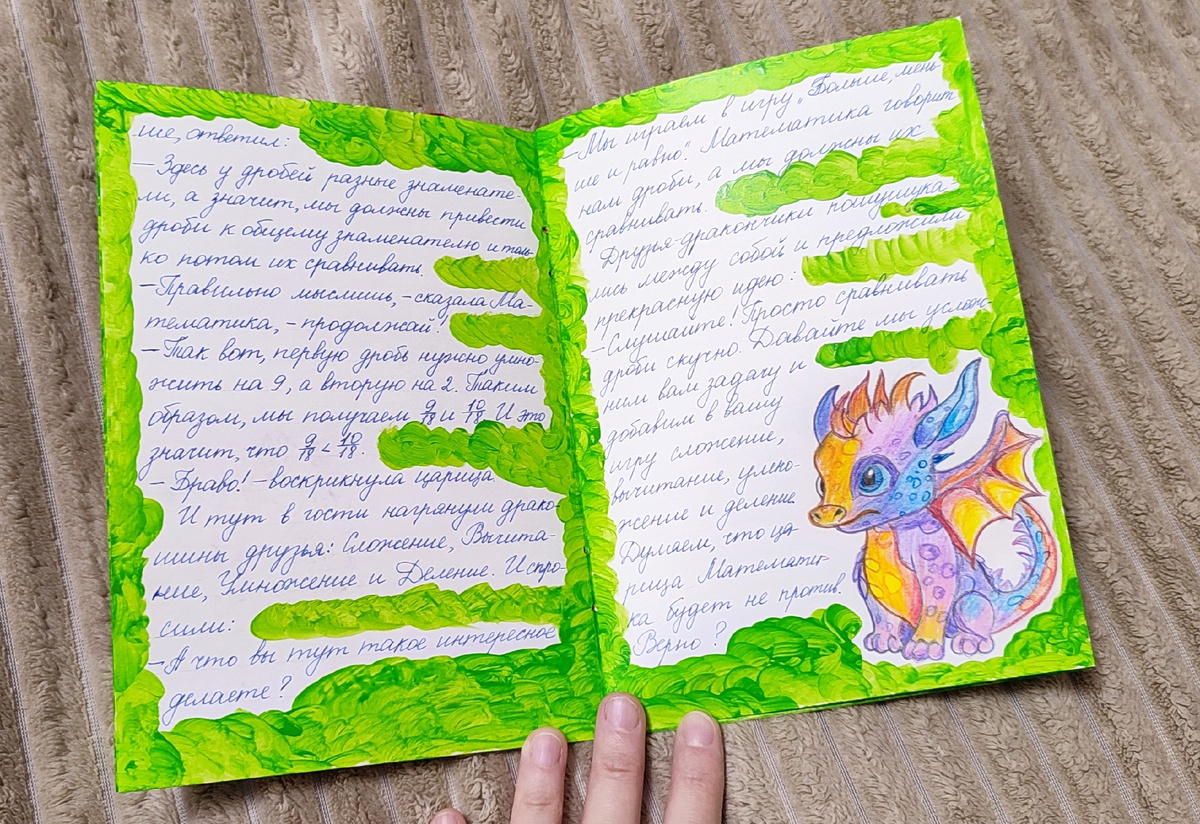 ше, ответил:
— Здесь у дробей разные знаменате-
ли, а значит, мы должны привести
дроби к общему знаменателю и толь-
ко потом их сравнивать.
— Правильно мыслишь, — сказала Ма-
тематика, — продолжай!
— Так вот, первую дробь нужно умно-
жить на 9, а вторую на 2. Таким
образом, мы получаем 9/18 и 10/18. И это
значит, что 9/18 < 10/18.
— Браво! — воскрикнула царица.
И тут в гости нагрянули драко-
шины друзья: Сложение, Вычита-
ние, Умножение и Деление. И спро-
сили:
— А что вы тут такое интересное
делаете?
— Мы играем в игру „Больше, мень-
ше и равно". Математика говорит
нам дроби, а мы должны их
сравнивать.
Друзья-дракончики пошушука-
лись между собой и предложили
прекрасную идею:
— Слушайте! Просто сравнивать
дроби скучно. Давайте мы услож-
ним вам задачу и
добавим в вашу
игру сложение,
вычитание, умно-
жение и деление.
Думаем, что ца-
рица Математи-
ка будет не против.
Верно?